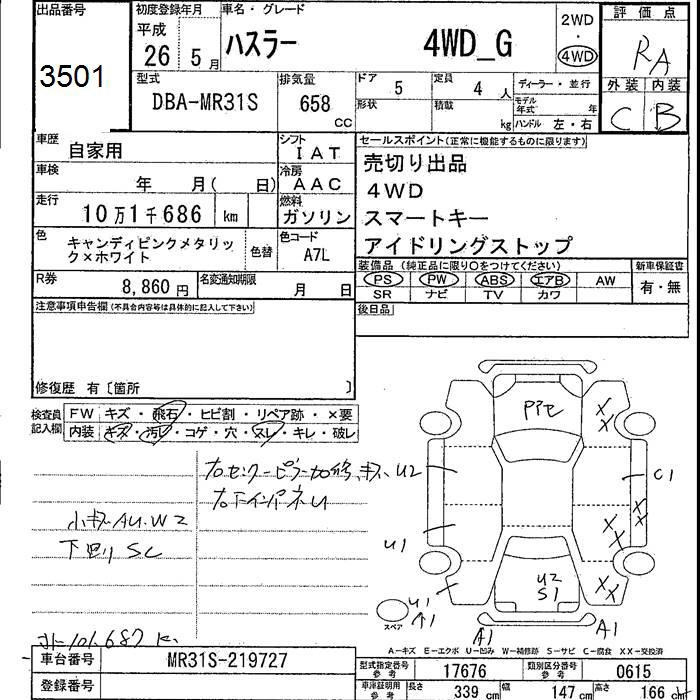 出品番号
3501
初度登録年月
平成
26 5 月
車名・グレード
ハスラー 4WD_G
2WD
・
4WD
評価点
RA
外装 内装
C B
型式
DBA-MR31S
排気量
658
CC
ドア 5
定員 4 人
形状
積載 kg
ディーラー・並行
モデル年式 年
ハンドル 左・右
車歴 自家用
シフト IAT
車検 年 月( 日)
冷房 AAC
走行 10万1千686 km
燃料 ガソリン
色 キャンディピンクメタリック×ホワイト
色替
色コード A7L
R券 8,860円
名変通知期限 月 日
セールスポイント(正常に機能するものに限ります)
売切り出品
4WD
スマートキー
アイドリングストップ
装備品(純正品に限り○をつけてください)
PS PW ABS エアB AW
SR ナビ TV カワ
新車保証書
有・無
後日品
注意事項申告欄(不具合内容等は具体的に記入して下さい)
修復歴 有〔箇所 〕
検査員記入欄
FW キズ・飛石・ヒビ割・リペア跡・×要
内装 キズ・汚レ・コゲ・穴・スレ・キレ・破レ
右センターピラー加修、キズ、U2
右下インパネU
小キズAU.W2
下廻りSC
101,687 K
U1
U1
A1
A1
A1
U2
S1
C1
XX
XX
XX
XX
スペア
A-キズ E-エクボ U-凹み W-補修跡 S-サビ C-腐食 XX-交換済
車台番号 MR31S-219727
登録番号
型式指定番号 参考 17676
類別区分番号 参考 0615
車庫証明用 参考 長さ 339 cm 幅 147 cm 高さ 166 cm